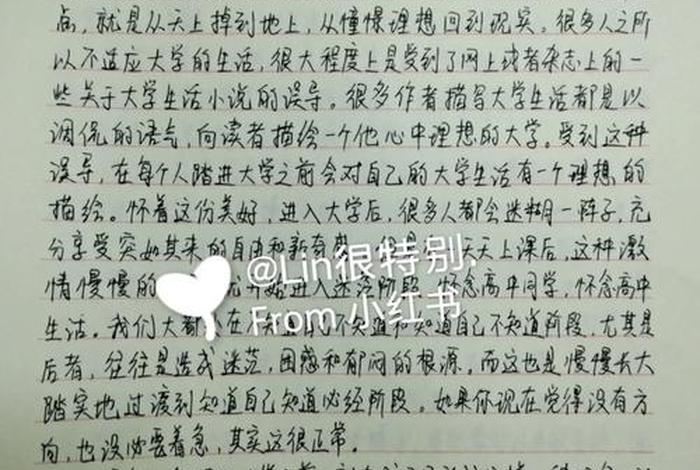 点，就是从天上掉到地上，从憧憬理想回到现实。很多人之所
以不适应大学的生活，很大程度上是受到了网上或者杂志上的一
些关于大学生活小说的误导。很多作者描写大学生活都是以
调侃的语气，向读者描绘一个他心中理想的大学。受到这种
误导，在每个人踏进大学之前会对自己的大学生活有一个理想的
描绘。怀着这份美好，进入大学后，很多人都会迷糊一阵子，充
分享受突如其来的自由和新奇感。但是
天天上课后，这种激
@Lin很特别，
情慢慢的
开始进入迷茫阶段，怀念高中同学，怀念高中
From 小红书
生活。我们大都
在不知道自己不知道和知道自己不知道阶段，尤其是
后者，往往是造成迷茫，困惑和郁闷的根源。而这也是慢慢长大
踏实地过渡到知道自己知道必经阶段。如果你现在觉得没有方
向，也没必要着急，其实这很正常。